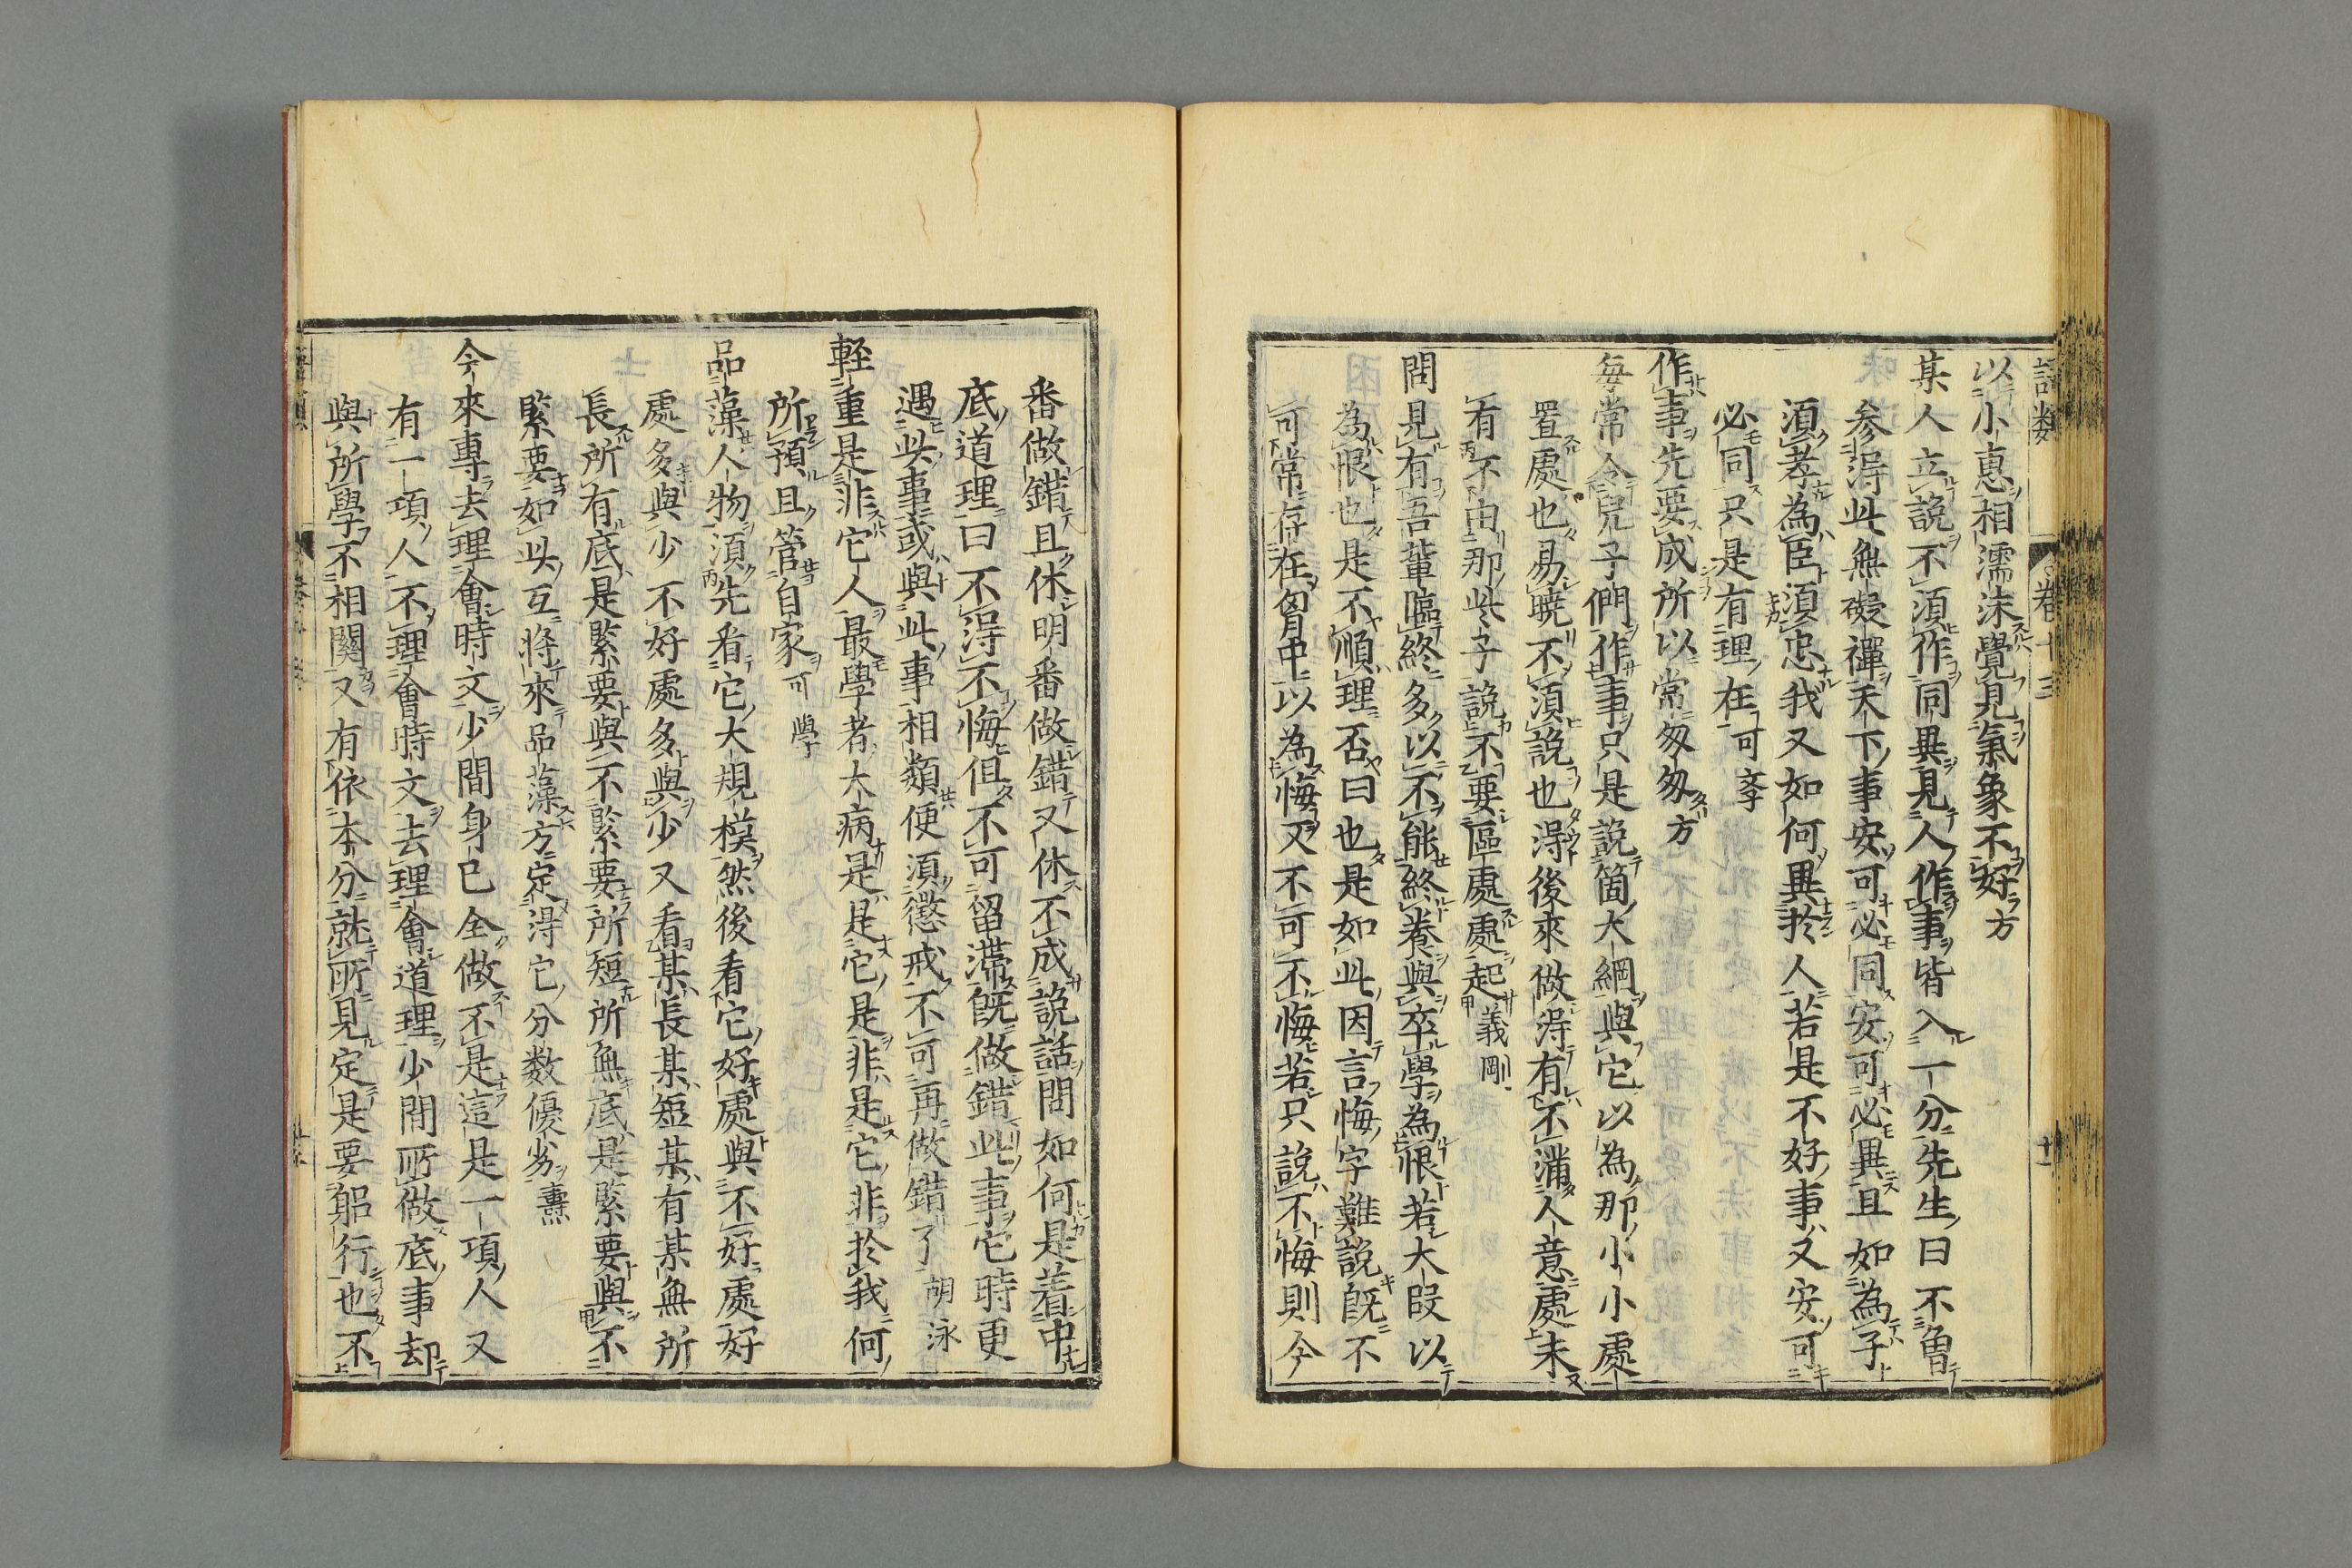 語類 卷十三 十一
以小惠相濡沫覺見氣象不好方
某人立說不須作同異見人作事皆入一分先生曰不魯
参得此無礙禪天下事安可必同安可必異且如為子
須孝為臣須忠我又如何異於人若是不好事又安可
必同只是有理在可孝
作事先要成所以常匆匆方
每常令兒子們作事只是說箇大綱與它以為那小小處
置處也易曉不須說也得後來做得有不滿人意處未
有不由那些子說不要區處處起義剛
問見有吾輩臨終多以不能終養與卒學為恨若大段以
為恨也是不順理否曰也是如此因言悔字難說既不
可常存在胷中以為悔又不可不悔若只說不悔則今
番做錯且休明番做錯又休不成說話問如何是著中
底道理曰不得不悔但不可留滯既做錯此事它時更
遇此事或與此事相類便須懲戒不可再做錯了胡泳
輕重是非它人最學者大病是是它是非是它非於我何
所預且管自家可學
品藻人物須先看它大規模然後看它好處與不好處好
處多與少不好處多與少又看某長某短某有某無所
長所有底是緊要與不緊要所短所無底是緊要與不
緊要如此互將來品藻方定得它分数優劣㽦
今來專去理會時文少間身己全做不是這是一項人又
有一項人不理會時文去理會道理少間所做底事却
與所學不相關又有依本分就所見定是要躬行也不